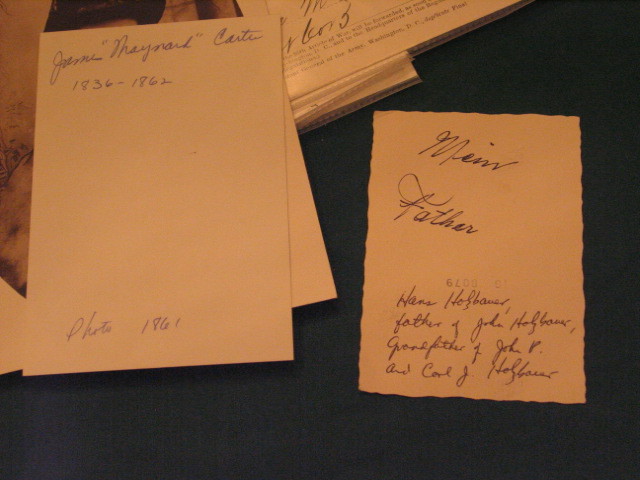 James "Maynard" Carter
1836-1862
Photo 1861
Washington, D.C.
Mein
Father
Hans Holzbauer,
father of John Holzbauer,
Grandfather of John P.
and Carl J. Holzbauer